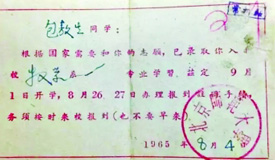 包敖生 同学:
根据国家需要和你的志愿,已录取你入本
校 牧草系 专业学习,兹定 9月
1日开学,8月26、27日办理报到注册手续
务须按时来校报到(也不要早来)
北京 大学
1965 年 8月4日